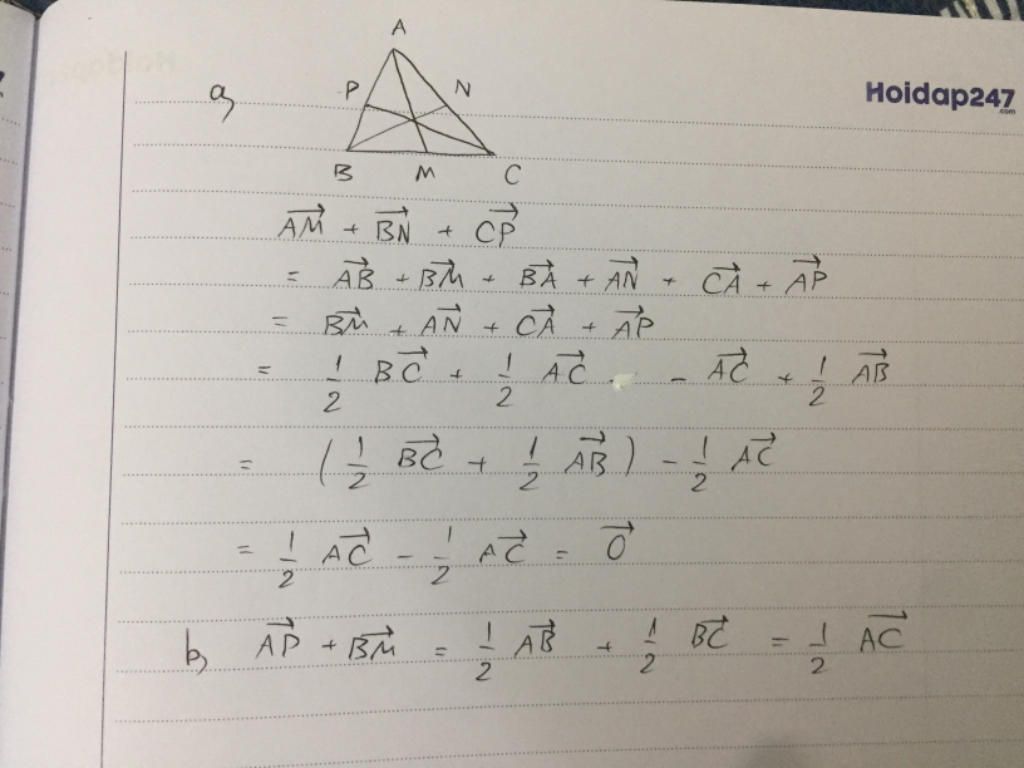 Hoidap247
.com
a)
A
P N
B M C
$\overrightarrow{AM} + \overrightarrow{BN} + \overrightarrow{CP}$
$= \overrightarrow{AB} + \overrightarrow{BM} + \overrightarrow{BA} + \overrightarrow{AN} + \overrightarrow{CA} + \overrightarrow{AP}$
$= \overrightarrow{BM} + \overrightarrow{AN} + \overrightarrow{CA} + \overrightarrow{AP}$
$= \frac{1}{2} \overrightarrow{BC} + \frac{1}{2} \overrightarrow{AC} - \overrightarrow{AC} + \frac{1}{2} \overrightarrow{AB}$
$= (\frac{1}{2} \overrightarrow{BC} + \frac{1}{2} \overrightarrow{AB}) - \frac{1}{2} \overrightarrow{AC}$
$= \frac{1}{2} \overrightarrow{AC} - \frac{1}{2} \overrightarrow{AC} = \overrightarrow{0}$
b) $\overrightarrow{AP} + \overrightarrow{BM} = \frac{1}{2} \overrightarrow{AB} + \frac{1}{2} \overrightarrow{BC} = \frac{1}{2} \overrightarrow{AC}$